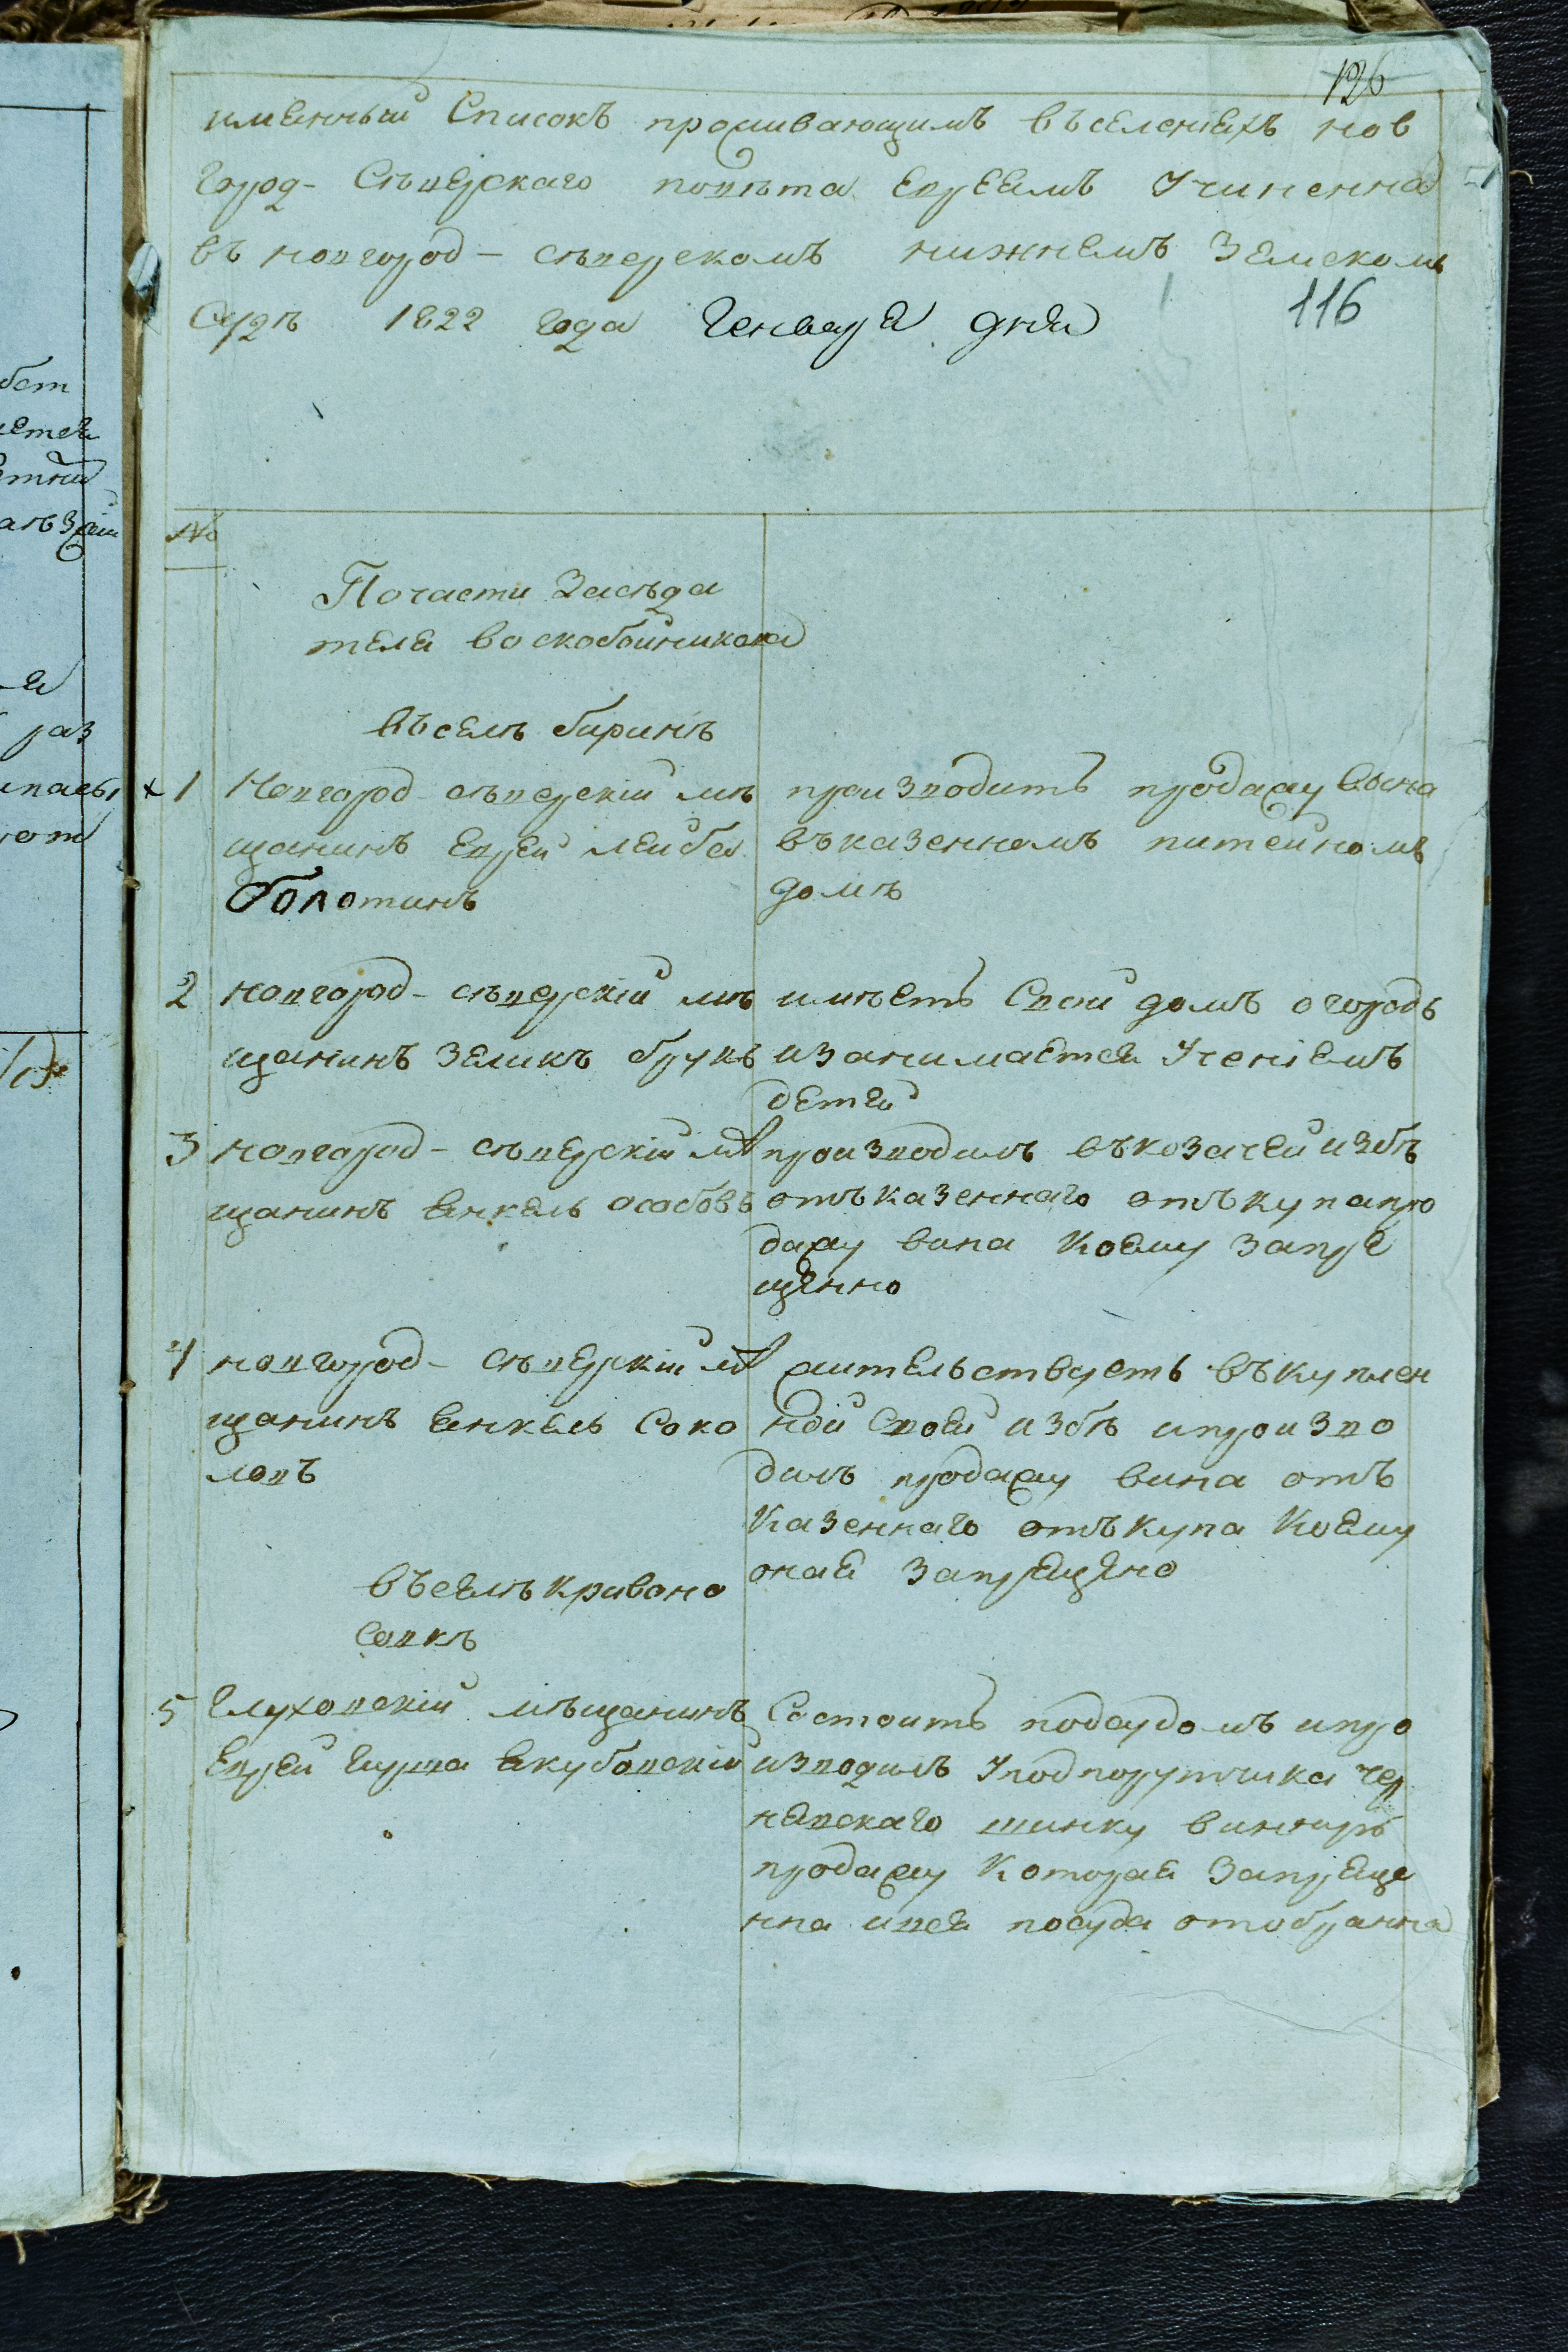 126
именный Списокъ проживающимъ въселениехъ нов
город-Съверскаго повѣта евреямъ Учиненна
въ новгород-сѣверскомъ нижнемъ Земскомъ
Судѣ 1822 года Генваря дня
116
№
Почасти Засѣда
теля воскобойникова
въселѣ биринѣ
х 1 Новгород-сѣверскій мѣ
щанинъ еврей лейба
болотинъ
производитъ продажу вина
въказенномъ питейномъ
домѣ
2 новгород-сѣверскій мѣ
щанинъ Зеликъ брукъ
имѣетъ Свой домъ огородъ
изанимается Ученіемъ
детей
3 новгород-сѣверскій мѣ
щанинъ янкель особовъ
производилъ въкозачей избѣ
отъказеннаго отъкупапро
дажу вина Коему Запре
щенно
4 новгород-сѣверскій мѣ
щанинъ янкель Соко
ловъ
жительствуетъ въкуплен
ной Своей избѣ ипроизво
дилъ продажу вина отъ
Казеннаго отъкупа Коему
оная Запрещено
въселѣ кривоно
совкѣ
5 Глуховскій мѣщанинъ
Еврей Гирша якубовскій
Состоитъ подсудомъ ипро
изводилъ Уподпорутчика Чер
нявскаго шинку
продажу Которая Запреще
нна ився посуда отобранна